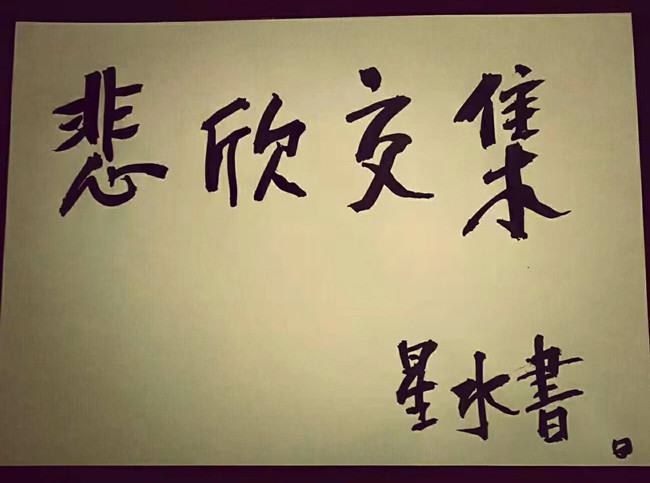 悲欣交集
星水書